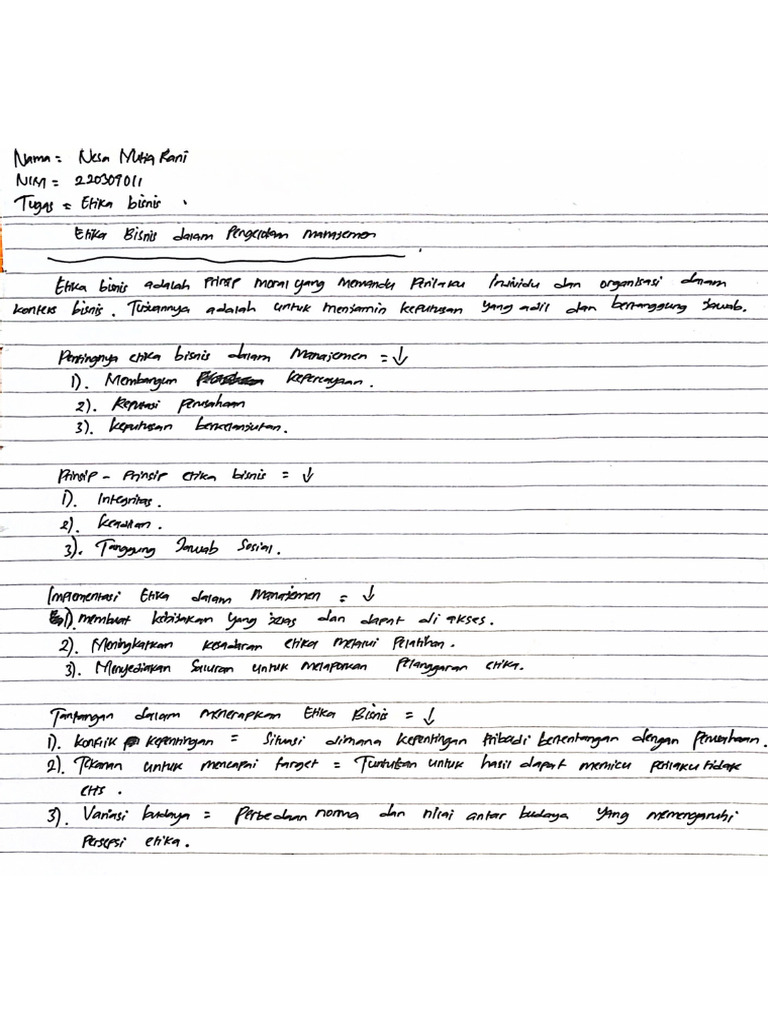 Nama = Nesa Mutia Rani
NIM = 220309011
Tugas = Etika bisnis
Etika Bisnis dalam Pengelolaan manajemen
Etika bisnis adalah Prinsip moral yang memandu Perilaku Individu dan organisasi dalam
konteks bisnis. Tujuannya adalah untuk menjamin keputusan yang adil dan bertanggung Jawab.
Pentingnya etika bisnis dalam Manajemen = ↓
1). Membangun kepercayaan.
2). Reputasi perusahaan
3). keputusan berkelanjutan.
Prinsip - Prinsip etika bisnis = ↓
1). Integritas.
2). keadilan.
3). Tanggung Jawab Sosial.
Implementasi Etika dalam Manajemen = ↓
1). membuat kebijakan yang jelas dan dapat di akses.
2). Meningkatkan kesadaran etika melalui Pelatihan.
3). Menyediakan Saluran untuk melaporkan Pelanggaran etika.
Tantangan dalam menerapkan Etika Bisnis = ↓
1). konflik kepentingan = Situasi dimana kepentingan Pribadi bertentangan dengan Perusahaan.
2). Tekanan untuk mencapai target = Tuntutan untuk hasil dapat memicu perilaku tidak
etis.
3). Variasi budaya = Perbedaan norma dan nilai antar budaya yang memengaruhi
Persepsi etika.